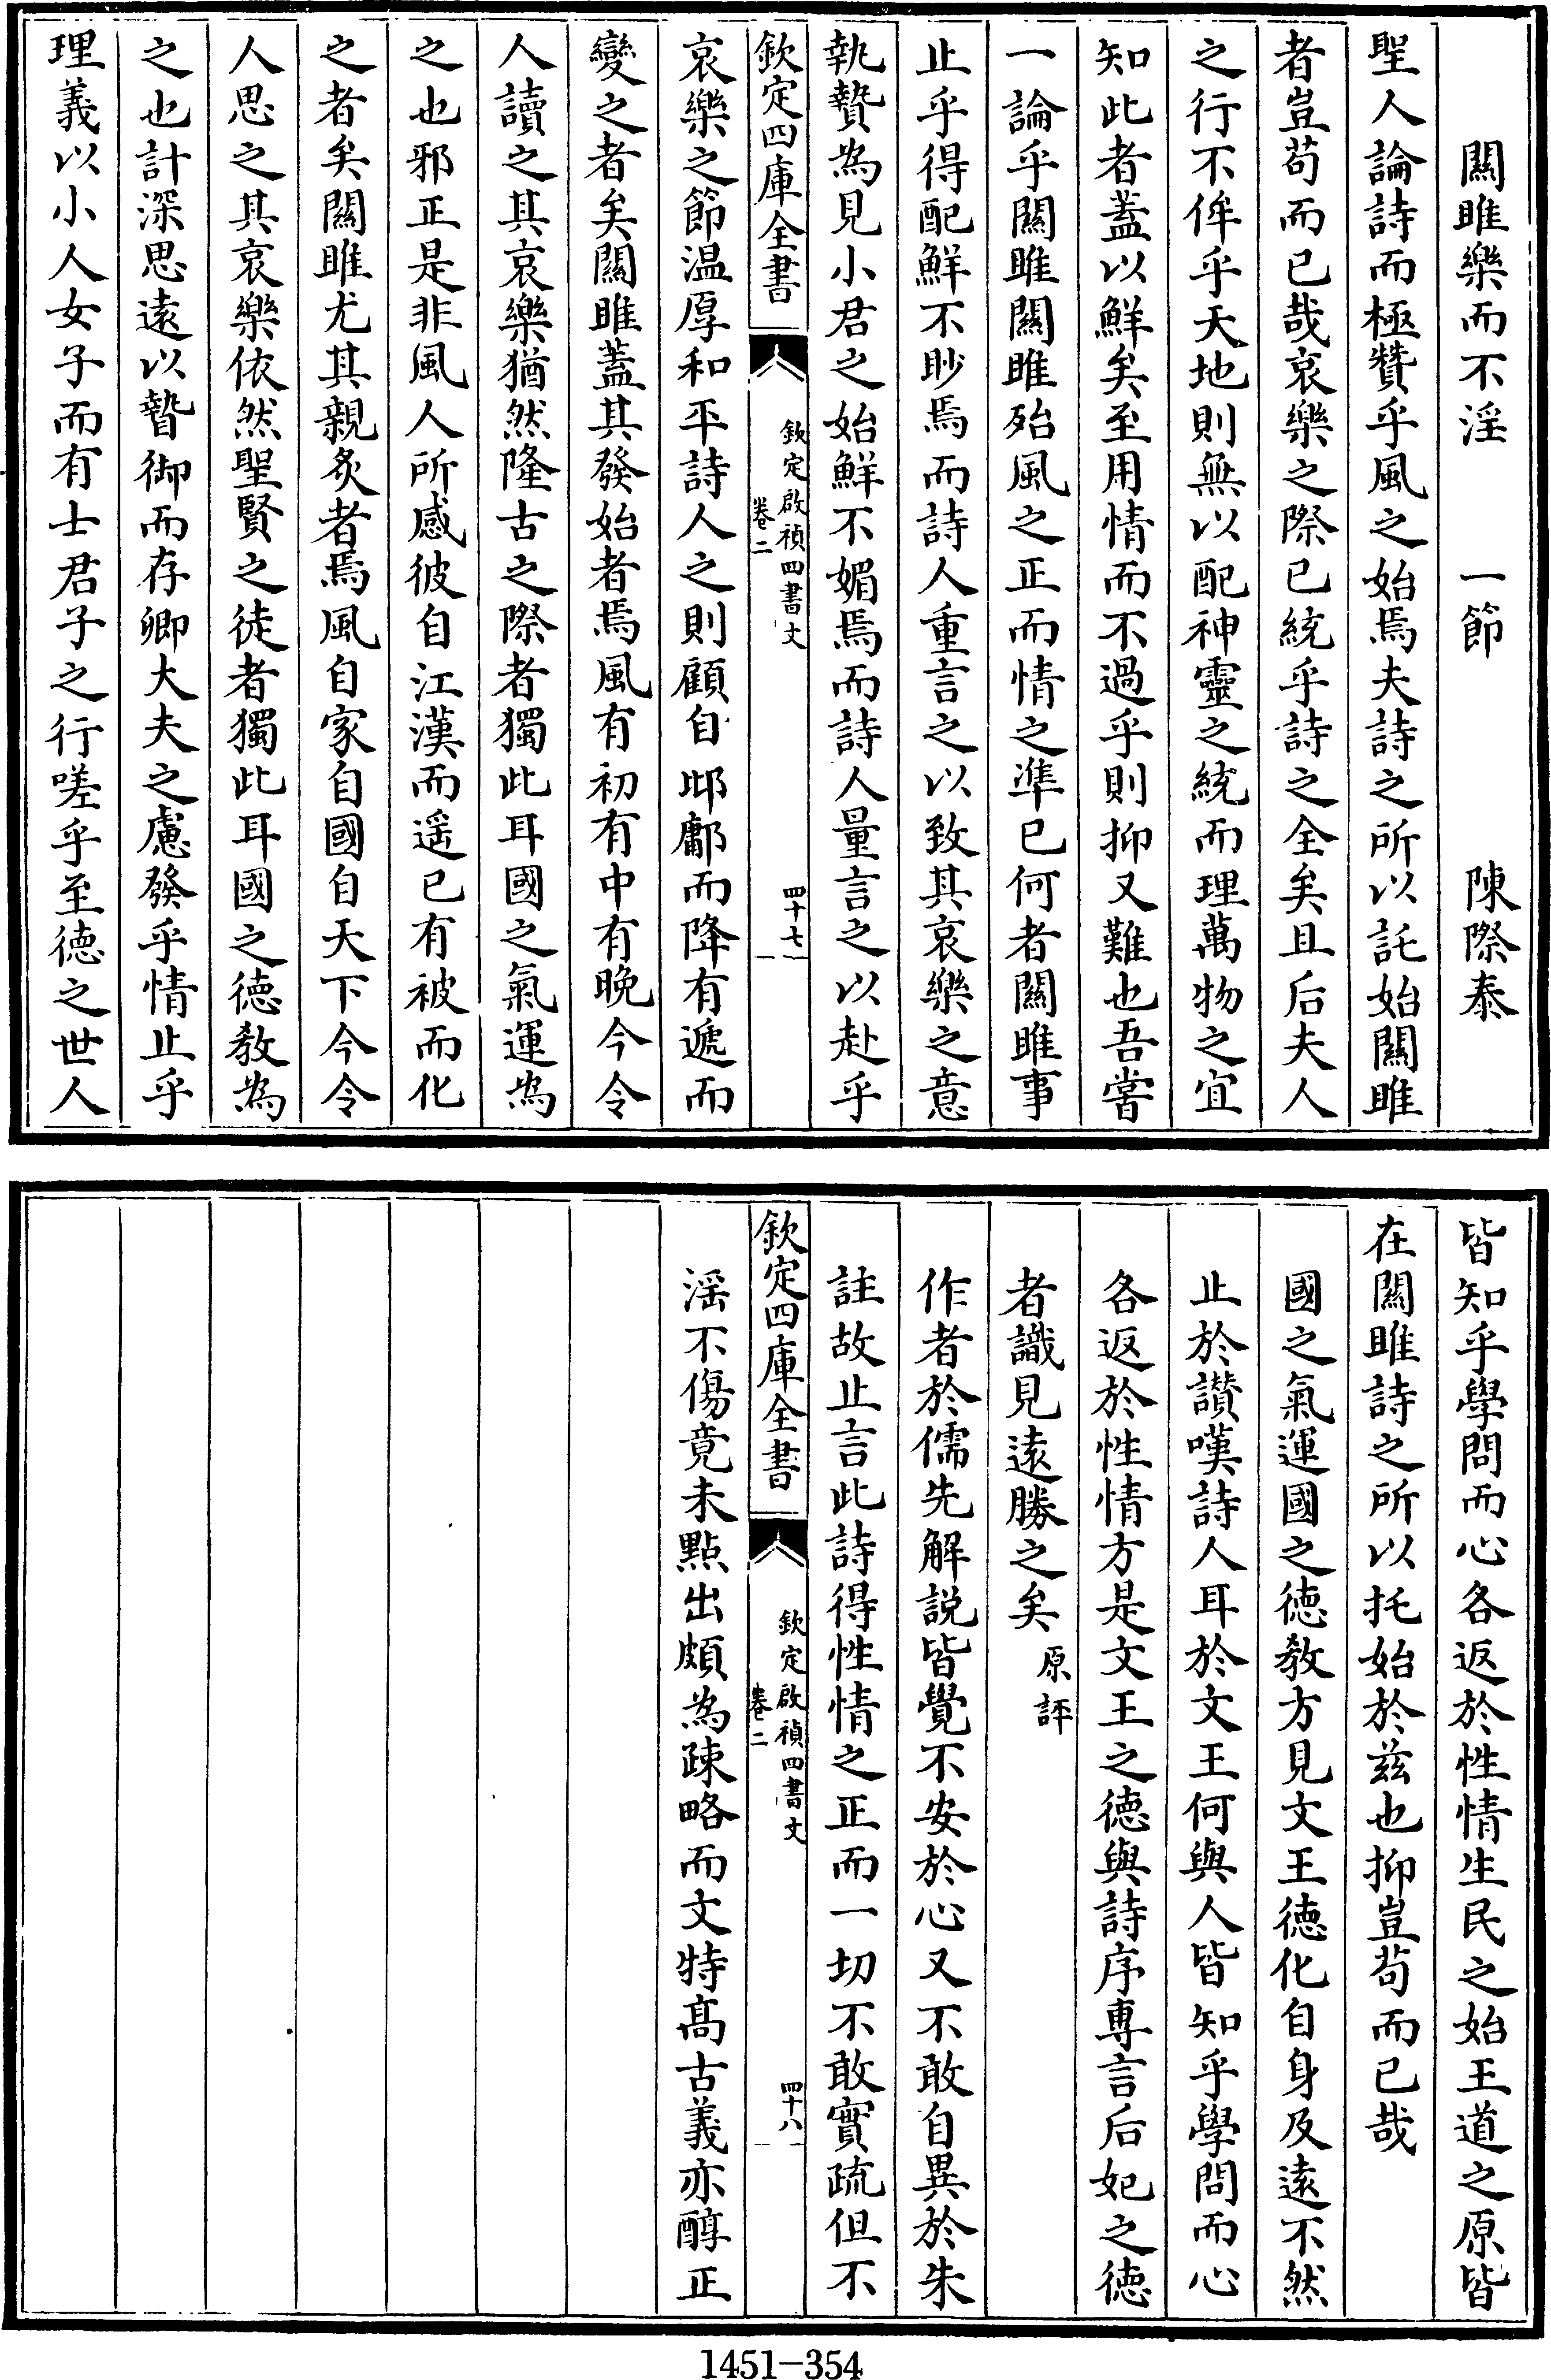 關雎樂而不淫　一節　陳際泰
聖人論詩而極贊乎風之始焉夫詩之所以託始關雎
者豈苟而已哉哀樂之際已統乎詩之全矣且后夫人
之行不侔乎天地則無以配神靈之統而理萬物之宜
知此者蓋以鮮矣至用情而不過乎則抑又難也吾嘗
一論乎關雎關雎殆風之正而情之準已何者關雎事
止乎得配鮮不眇焉而詩人重言之以致其哀樂之意
執贄為見小君之始鮮不媚焉而詩人量言之以赴乎
欽定四庫全書
欽定啟禎四書文
卷二
四十七
哀樂之節温厚和平詩人之則顧自邶鄘而降有遞而
變之者矣關雎蓋其發始者焉風有初有中有晚今令
人讀之其哀樂猶然隆古之際者獨此耳國之氣運為
之也邪正是非風人所感彼自江漢而遥已有被而化
之者矣關雎尤其親炙者焉風自家自國自天下今令
人思之其哀樂依然聖賢之徒者獨此耳國之德教為
之也計深思遠以暬御而存卿大夫之慮發乎情止乎
理義以小人女子而有士君子之行嗟乎至德之世人
皆知乎學問而心各返於性情生民之始王道之原皆
在關雎詩之所以托始於兹也抑豈苟而已哉
國之氣運國之德教方見文王德化自身及遠不然
止於讃嘆詩人耳於文王何與人皆知乎學問而心
各返於性情方是文王之德與詩序專言后妃之德
者識見遠勝之矣原評
作者於儒先解説皆覺不安於心又不敢自異於朱
註故止言此詩得性情之正而一切不敢實疏但不
欽定四庫全書
欽定啟禎四書文
卷二
四十八
淫不傷竟未點出頗為踈略而文特高古義亦醇正
1451-354